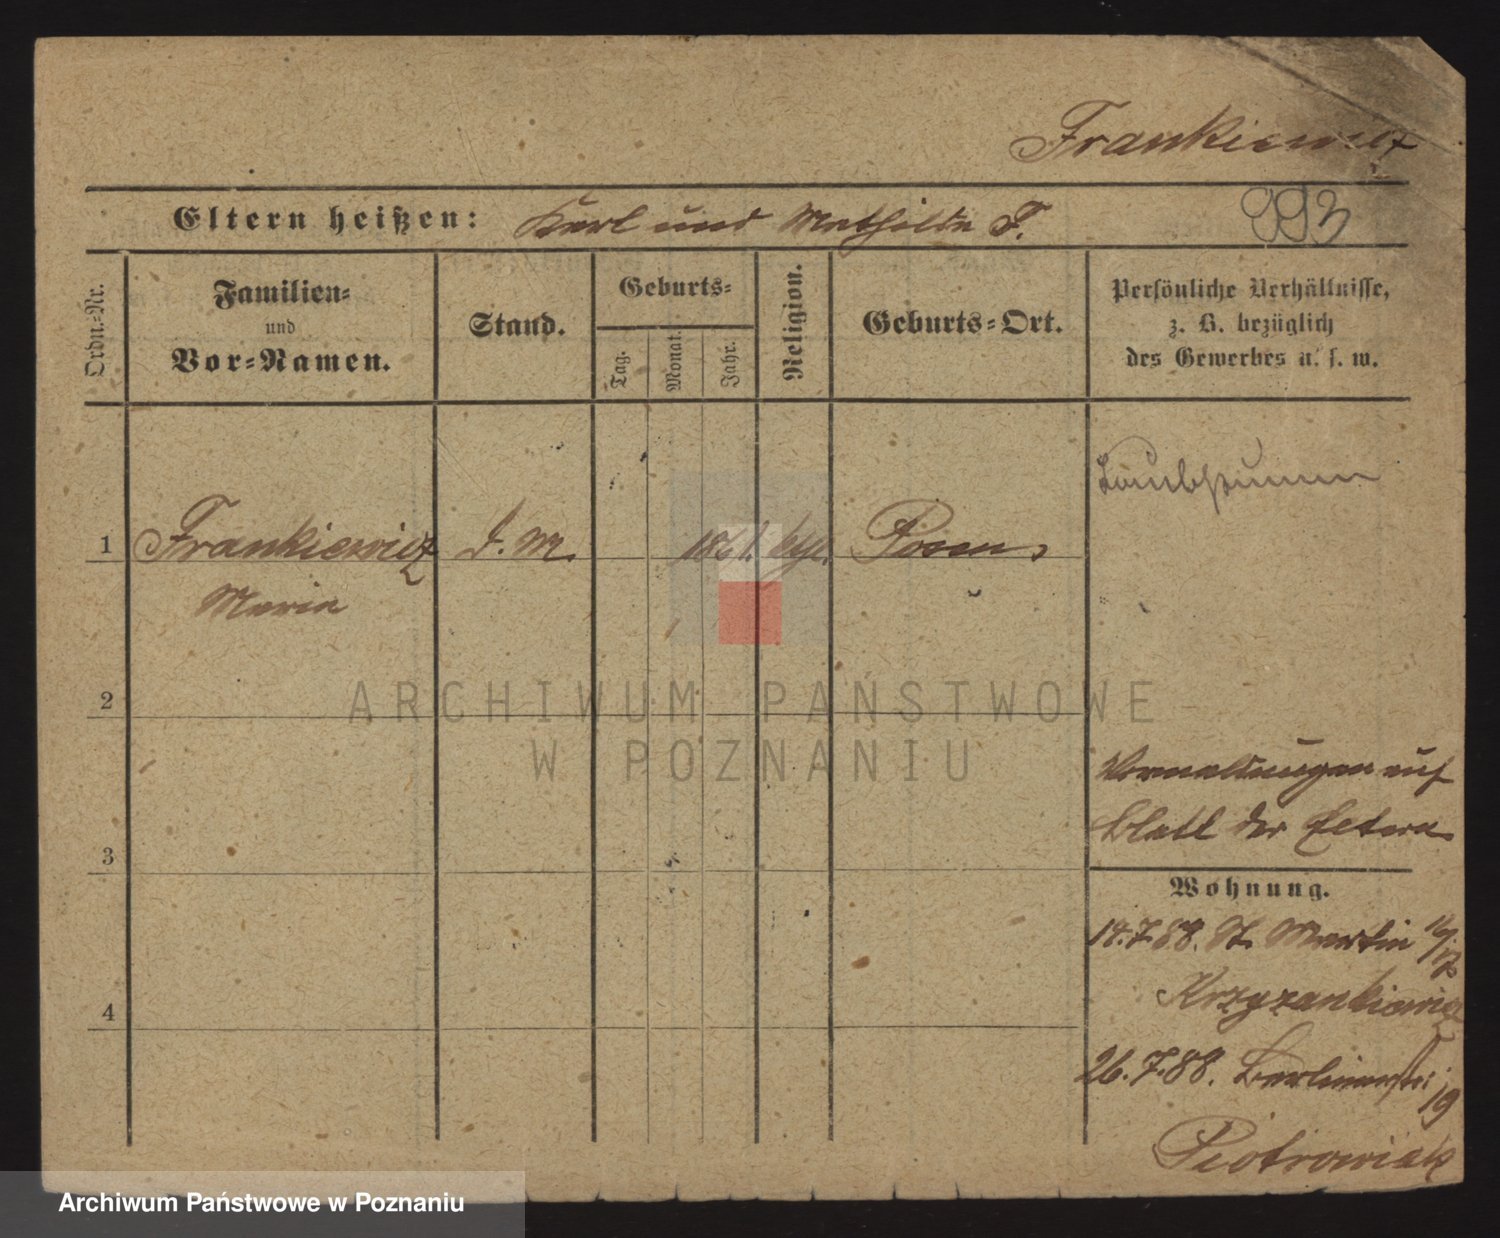 Frankiewicz
Eltern heißen: Karl und Mathilde F.
993
Ordn.-Nr.
Familien-
und
Vor-Namen.
Stand.
Geburts-
Tag.
Monat.
Jahr.
Religion.
Geburts-Ort.
Persönliche Verhältnisse,
z. B. bezüglich
des Gewerbes u. s. w.
Taubstumm
1 Frankiewicz d. M. 1861. kth. Posen
Maria
2
ARCHIWUM PAŃSTWOWE
W POZNANIU
Vermeldungen auf
Blatt der Eltern
3
Wohnung.
18.7.88. St. Martin 16/17
Krzyzankiewicz
4
26.7.88. Berlinerstr: 19
Piotrowiak
Archiwum Państwowe w Poznaniu